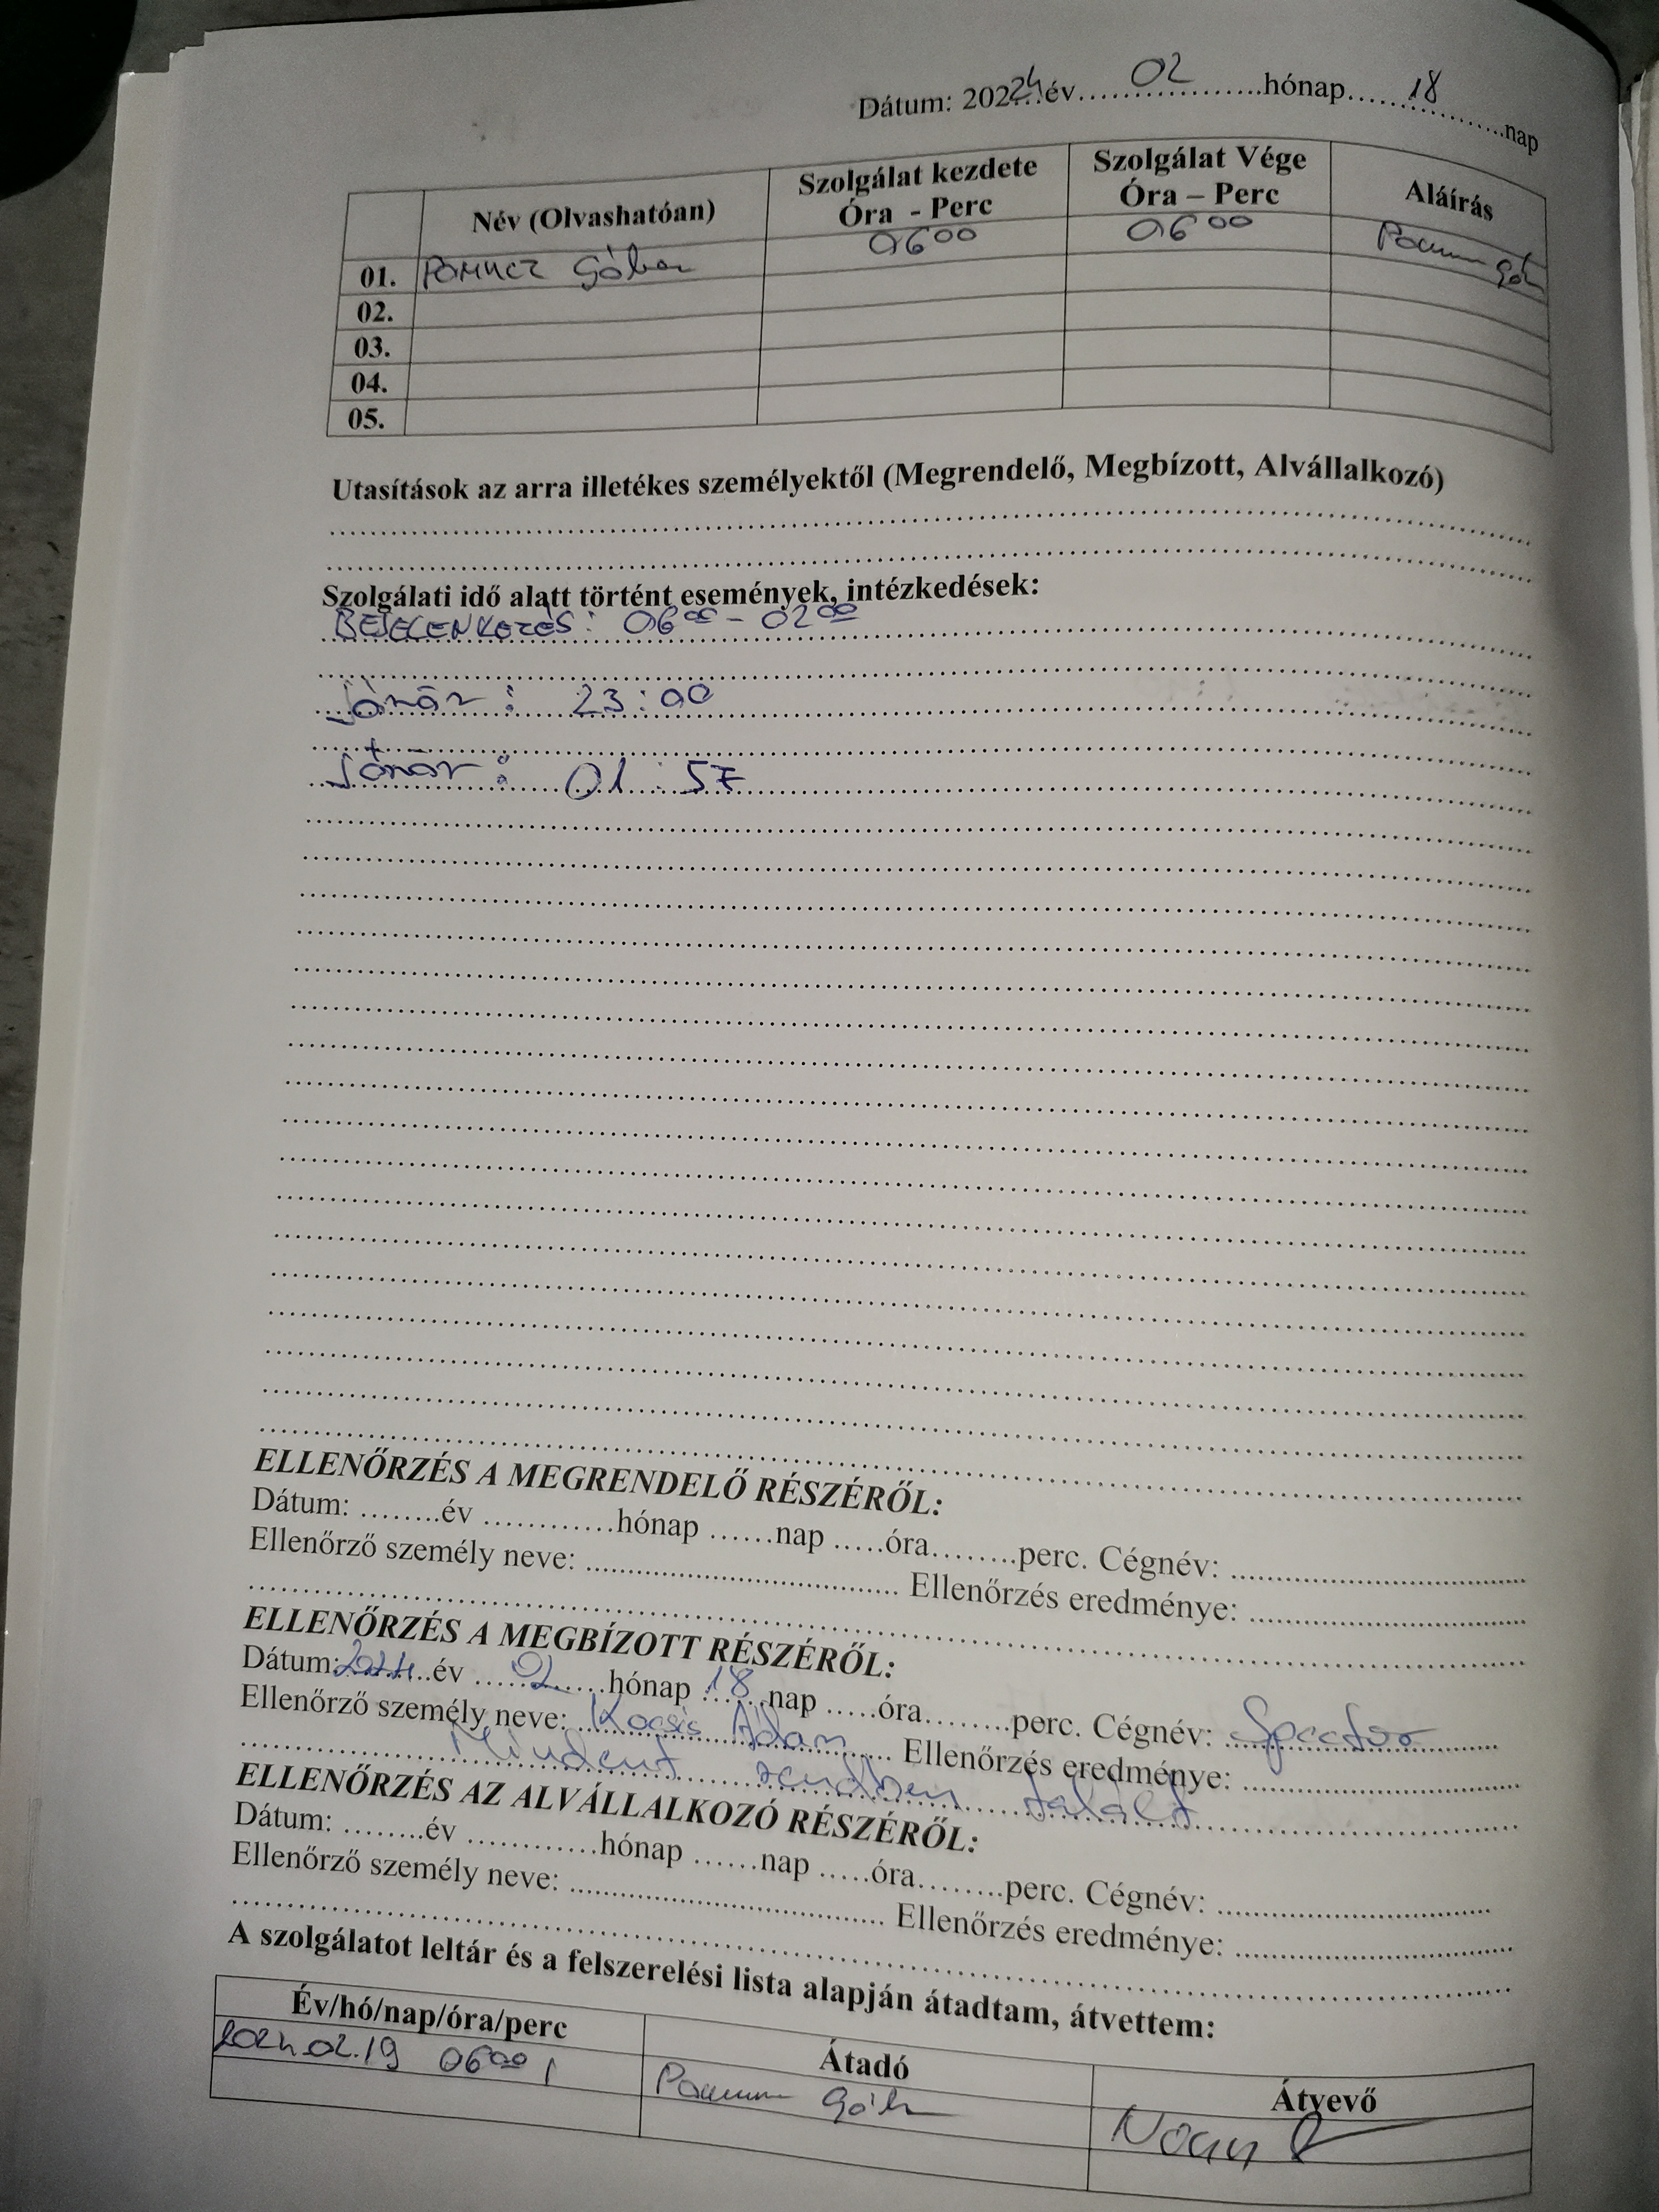 Dátum: 2024 év 02 hónap 18 nap
Név (Olvashatóan) Szolgálat kezdete Óra - Perc Szolgálat Vége Óra – Perc Aláírás
01. Gábor 06 00 06 00
02.
03.
04.
05.
Utasítások az arra illetékes személyektől (Megrendelő, Megbízott, Alvállalkozó)
Szolgálati idő alatt történt események, intézkedések:
BEJELENKEZÉS: 06 00 - 02 00
Járőr: 23:00
Járőr: 01:57
ELLENŐRZÉS A MEGRENDELŐ RÉSZÉRŐL:
Dátum: ........év ............hónap ......nap .....óra........perc. Cégnév: ....................
Ellenőrző személy neve: .................... Ellenőrzés eredménye: ....................
ELLENŐRZÉS A MEGBÍZOTT RÉSZÉRŐL:
Dátum: 2024 év 02 hónap 18 nap .....óra........perc. Cégnév:
Ellenőrző személy neve: Kocsis Ádám Ellenőrzés eredménye: ....................
Mindent rendben talált
ELLENŐRZÉS AZ ALVÁLLALKOZÓ RÉSZÉRŐL:
Dátum: ........év ............hónap ......nap .....óra........perc. Cégnév: ....................
Ellenőrző személy neve: .................... Ellenőrzés eredménye: ....................
A szolgálatot leltár és a felszerelési lista alapján átadtam, átvettem:
Év/hó/nap/óra/perc Átadó Átvevő
2024.02.19 06 00